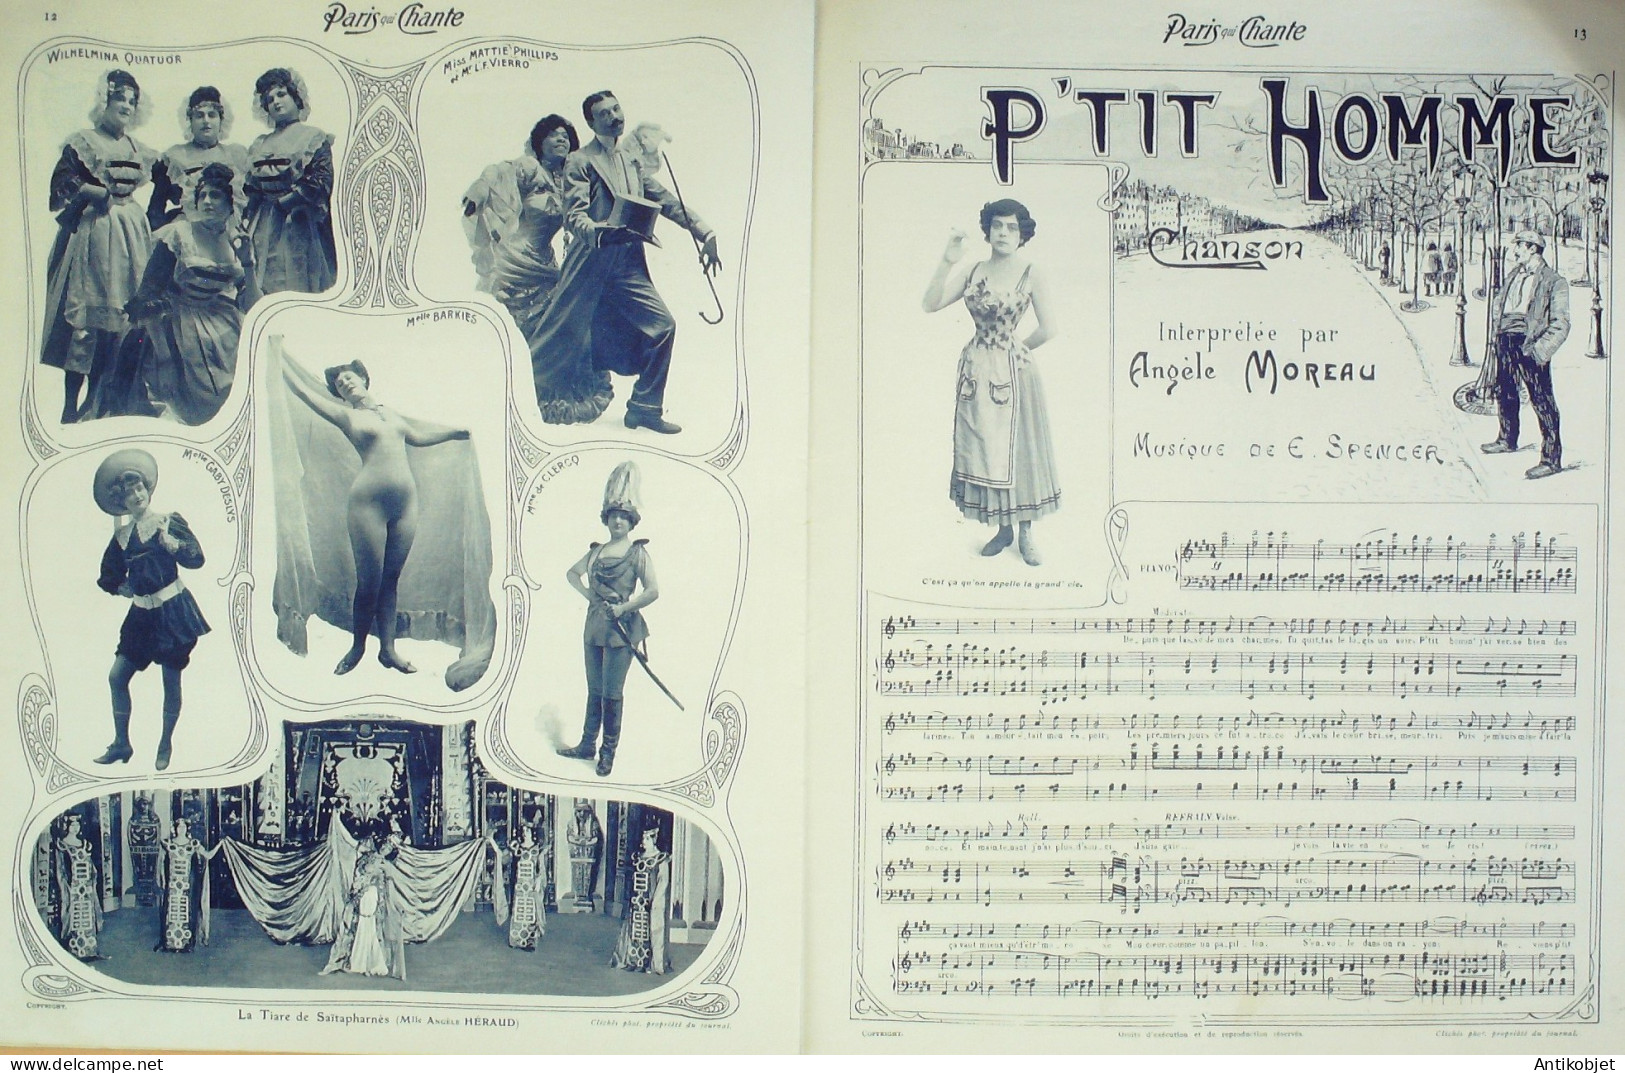 12
Paris qui Chante
WILHELMINA QUATUOR
MISS MATTIE PHILLIPS
et Mr L.F. VIERRO
Melle BARKIES
Melle GABY DESLYS
Mme de CLERCQ
COPYRIGHT.
La Tiare de Saïtapharnès (Mlle ANGÈLE HÉRAUD)
Clichés phot. propriété du journal.
Paris qui Chante
13
P'TIT HOMME
Chanson
Interprétée par
Angèle MOREAU
MUSIQUE DE E. SPENCER
C'est ça qu'on appelle la grand' vie.
PIANO
Moderato
De_puis que las_sé de mes char_mes, Tu quit_tas le lo_gis un soir, P'tit homm' j'ai ver_sé bien des
larmes. Ton a_mour é_tait mon es_poir; Les pre_miers jours ce fut a_tro_ce J'a_vais le cœur bri_sé, meur_tri;
Rall. REFRAIN. Valse.
no_ce, Et main_te_nant j'n'ai plus d'sou_ci. J'suis gaie je vois la vie en ro_se Je ris! (rires.)
pizz. arco. pizz.
ça vaut mieux qu'd'êtr' mo_ro_se Mon cœur, comme un pa_pil_lon, S'en_vo_le dans un ra_yon; Re_viens p'tit
arco.
COPYRIGHT.
Droits d'exécution et de reproduction réservés.
Clichés phot. propriété du journal.
Antikobjet